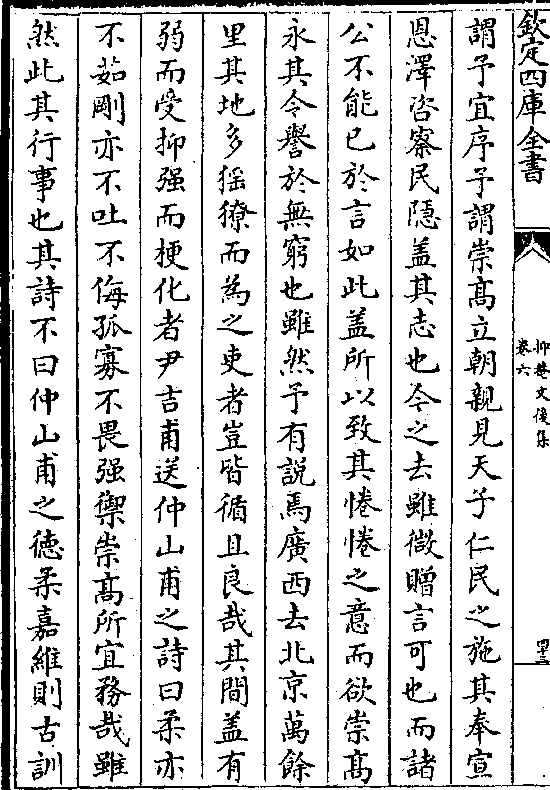 欽定四庫全書
抑菴文後集
卷六
四十三
謂予宜序予謂崇髙立朝親見天子仁民之施其奉宣
恩澤咨察民隱盖其志也今之去雖微贈言可也而諸
公不能已於言如此盖所以致其惓惓之意而欲崇髙
永其令譽於無窮也雖然予有説焉廣西去北京萬餘
里其地多猺獠而為之吏者豈皆循且良哉其間盖有
弱而受抑强而梗化者尹吉甫送仲山甫之詩曰柔亦
不茹剛亦不吐不侮孤寡不畏强禦崇髙所宜務哉雖
然此其行事也其詩不曰仲山甫之德柔嘉維則古訓